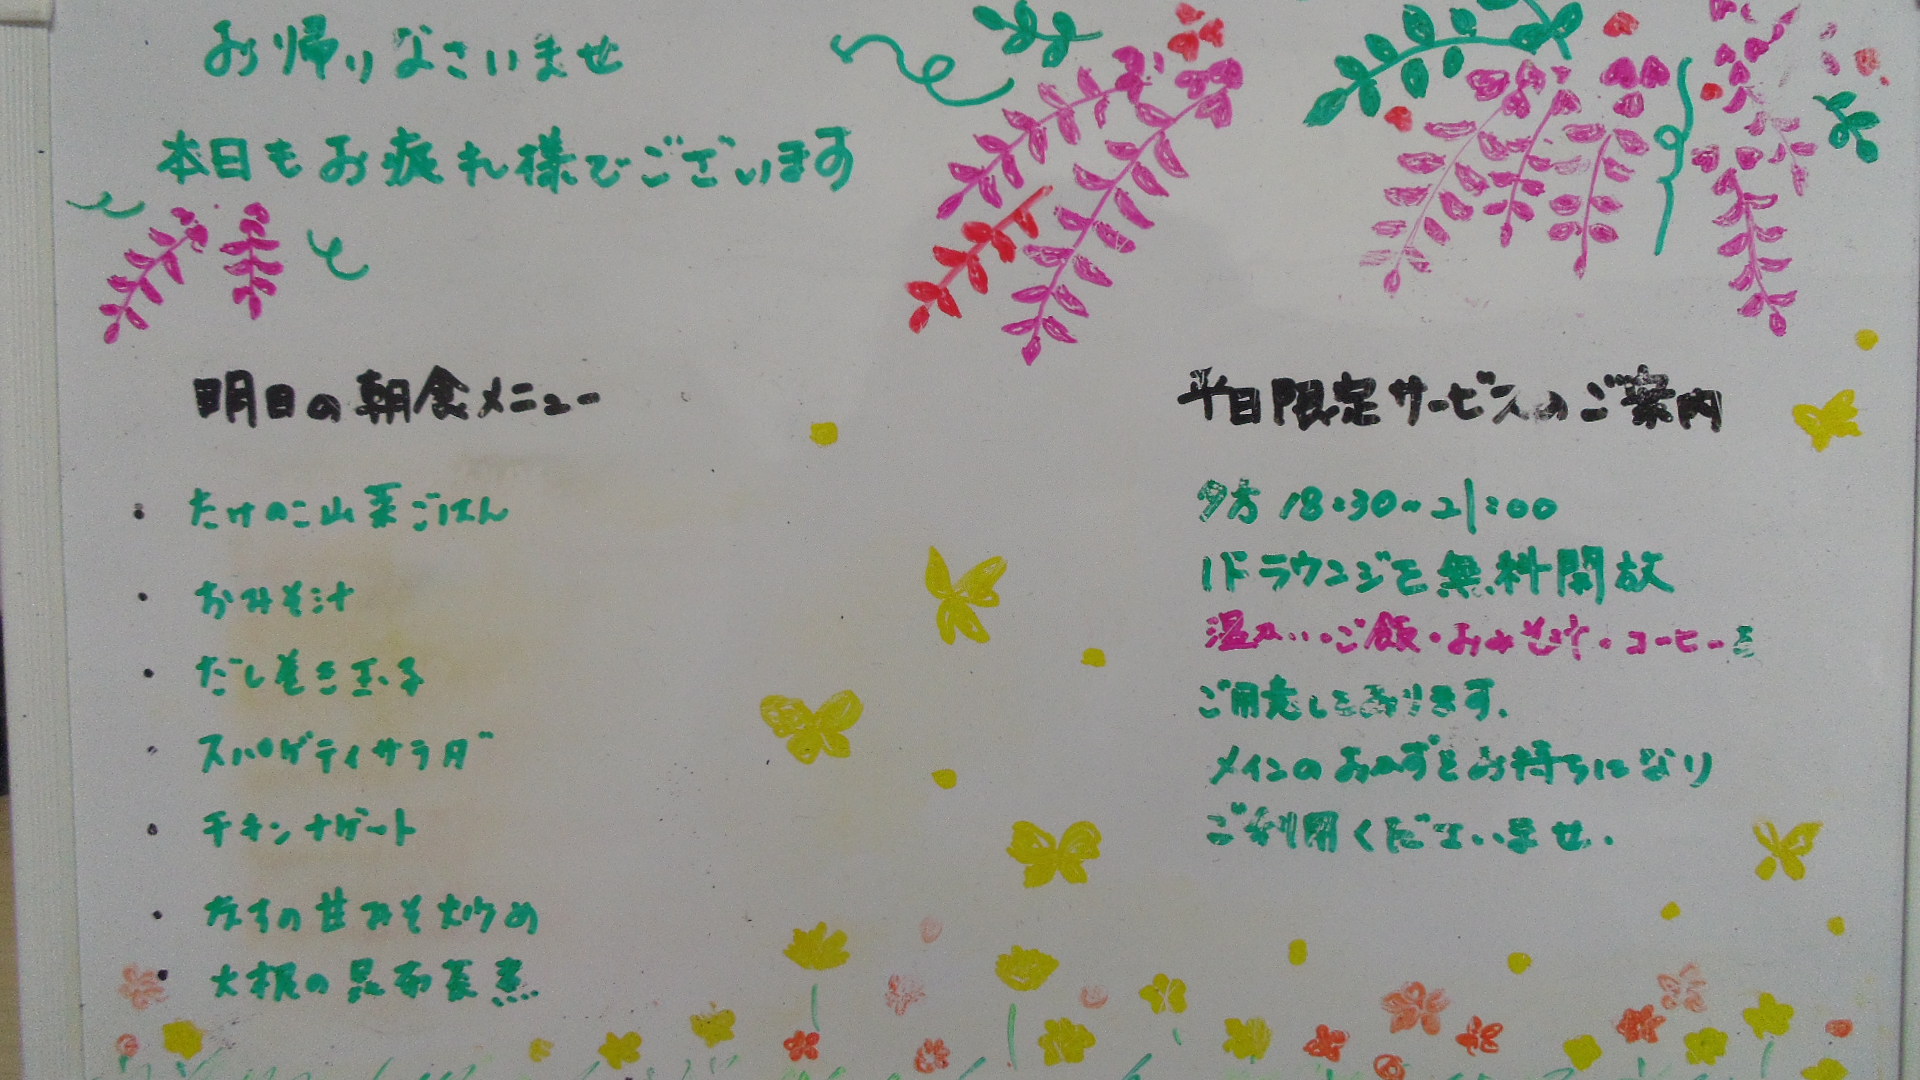 お帰りなさいませ
本日もお疲れ様でございます
明日の朝食メニュー
・たけのこ山菜ごはん
・おみそ汁
・だし巻き玉子
・スパゲティサラダ
・チキンナゲート
・なすの甘みそ炒め
・大根の昆布羹煮
平日限定サービスのご案内
夕方 18:30~21:00
1Fラウンジを無料開放
温かいご飯・おみそ汁・コーヒーを
ご用意しております。
メインのおかずをお持ちになり
ご利用くださいませ。